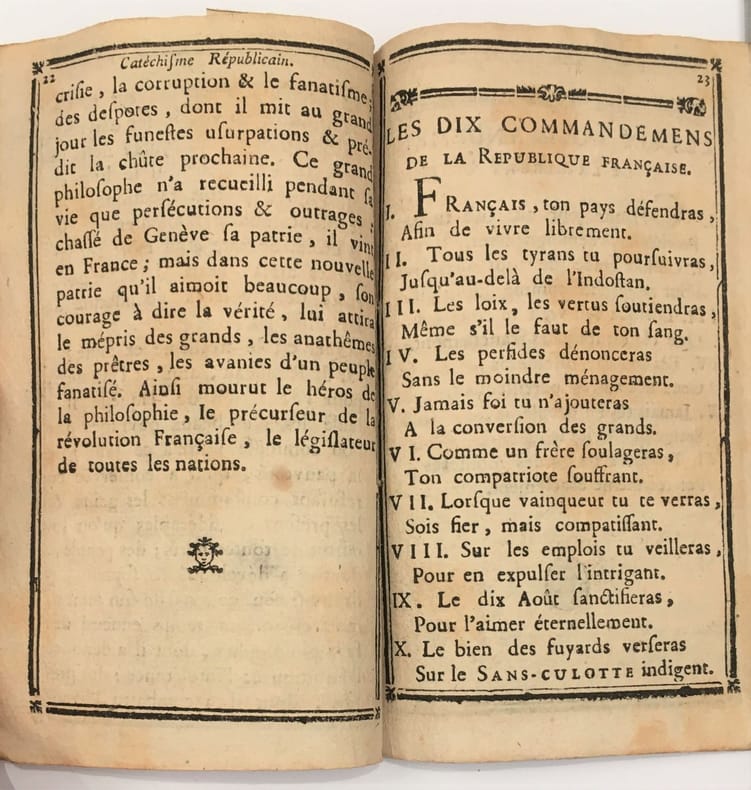 22
Catéchiſme Républicain.
criſie, la corruption & le fanatiſme,
des deſpotes, dont il mit au grand
jour les funeſtes uſurpations & pré-
dit la chûte prochaine. Ce grand
philoſophe n'a recueilli pendant ſa
vie que perſécutions & outrages ;
chaſſé de Genève ſa patrie, il vint
en France ; mais dans cette nouvelle
patrie qu'il aimoit beaucoup, ſon
courage à dire la vérité, lui attira
le mépris des grands, les anathêmes
des prêtres, les avanies d'un peuple
fanatiſé. Ainſi mourut le héros de
la philoſophie, le précurſeur de la
révolution Françaiſe, le légiſlateur
de toutes les nations.
23
LES DIX COMMANDEMENS
DE LA REPUBLIQUE FRANÇAISE.
I. FRANÇAIS, ton pays défendras,
Afin de vivre librement.
II. Tous les tyrans tu pourſuivras,
Juſqu'au-delà de l'Indoſtan.
III. Les loix, les vertus ſoutiendras,
Même s'il le faut de ton ſang.
IV. Les perfides dénonceras
Sans le moindre ménagement.
V. Jamais foi tu n'ajouteras
A la converſion des grands.
VI. Comme un frère ſoulageras,
Ton compatriote ſouffrant.
VII. Lorſque vainqueur tu te verras,
Sois fier, mais compatiſſant.
VIII. Sur les emplois tu veilleras,
Pour en expulſer l'intrigant.
IX. Le dix Août ſanctifieras,
Pour l'aimer éternellement.
X. Le bien des fuyards verſeras
Sur le SANS-CULOTTE indigent.